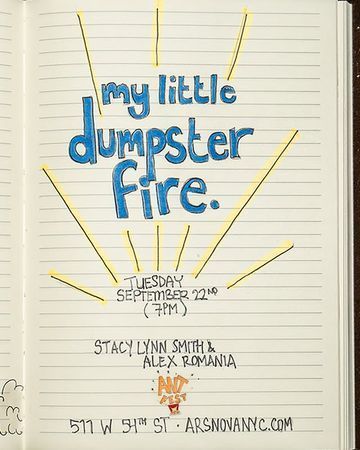 my little
dumpster
fire.
TUESDAY
SEPTEMBER 22ND
(7PM)
STACY LYNN SMITH &
ALEX ROMANIA
ANT
FEST
511 W 54TH ST · ARSNOVANYC.COM